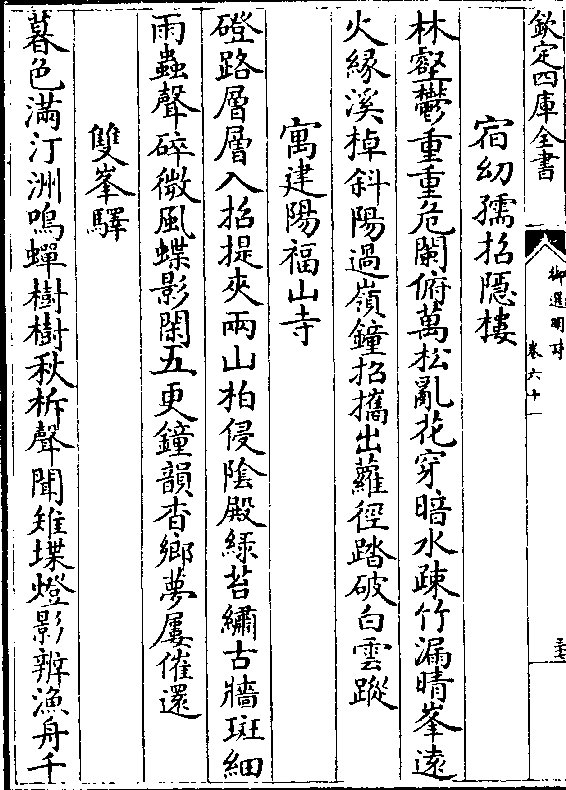 欽定四庫全書
御選明詩
卷六十一
三十七
宿幼孺招隱樓
林壑鬱重重危闌俯萬松亂花穿暗水疎竹漏晴峯遠
火緣溪棹斜陽過嶺鐘招攜出蘿徑踏破白雲蹤
寓建陽福山寺
磴路層層入招提夾兩山柏侵陰殿綠苔繡古牆斑細
雨蟲聲碎微風蝶影閑五更鐘韻杳鄉夢屢催還
雙峯驛
暮色滿汀洲鳴蟬樹樹秋柝聲聞雉堞燈影辨漁舟千